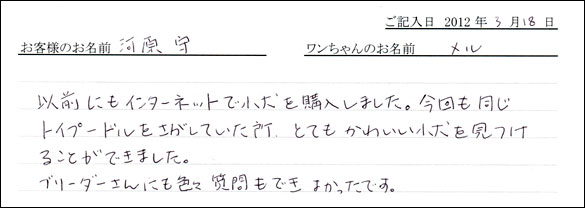 ご記入日 2012年3月18日
お客様のお名前 河原 守 ワンちゃんのお名前 メル
以前にもインターネットで小犬を購入しました。今回も同じ
トイプードルをさがしていた所、とてもかわいい小犬を見つけ
ることができました。
ブリーダーさんにも色々質問もでき よかったです。